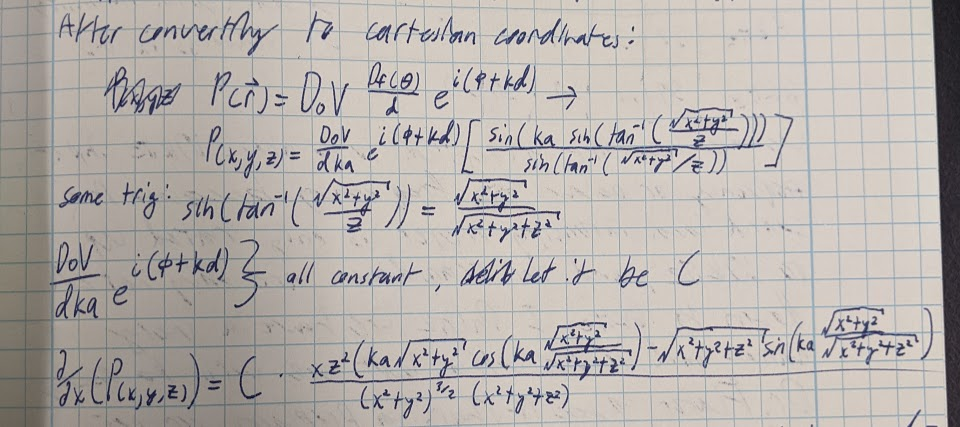 After converting to cartesian coordinates:
P(r⃗) = D₀V D_f(θ)/d e^{i(ϕ+kd)} →
P(x,y,z) = D₀V/dka e^{i(ϕ+kd)} [ sin(ka sin(tan⁻¹(√(x²+y²)/z))) / sin(tan⁻¹(√(x²+y²)/z)) ]
some trig: sin(tan⁻¹(√(x²+y²)/z)) = √(x²+y²)/√(x²+y²+z²)
D₀V/dka e^{i(ϕ+kd)} } all constant, let it be C
∂/∂x (P(x,y,z)) = C · xz²(ka√(x²+y²) cos(ka √(x²+y²)/√(x²+y²+z²)) − √(x²+y²+z²) sin(ka √(x²+y²)/√(x²+y²+z²)) / (x²+y²)^{3/2} (x²+y²+z²)